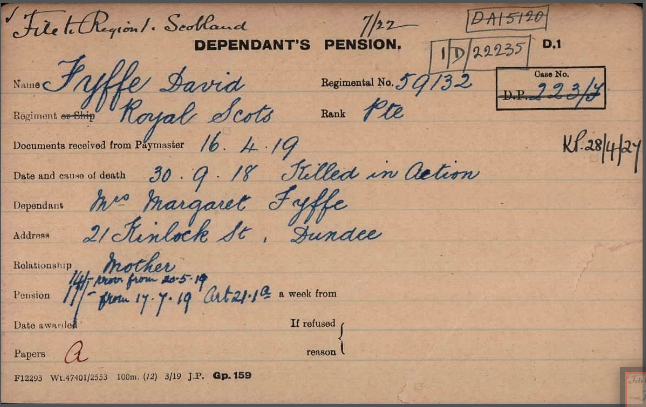 File to Region 1. Scotland 7/22 DA15120
DEPENDANT'S PENSION. 1/D/22235 D.1
Name Fyffe David Regimental No. 59132 Case No.
D.P. 223/J
Regiment or Ship Royal Scots Rank Pte
Documents received from Paymaster 16.4.19
K.P. 28/4/27
Date and cause of death 30.9.18 Killed in Action
Dependant Mrs Margaret Fyffe
Address 21 Kinlock St, Dundee
Relationship Mother
from 20-5-19
Pension from 17.7.19 Art 21.1a a week from
Date awarded If refused
Papers A reason
F12293 Wt.47401/2553 100m. (12) 3/19 J.P. Gp.159